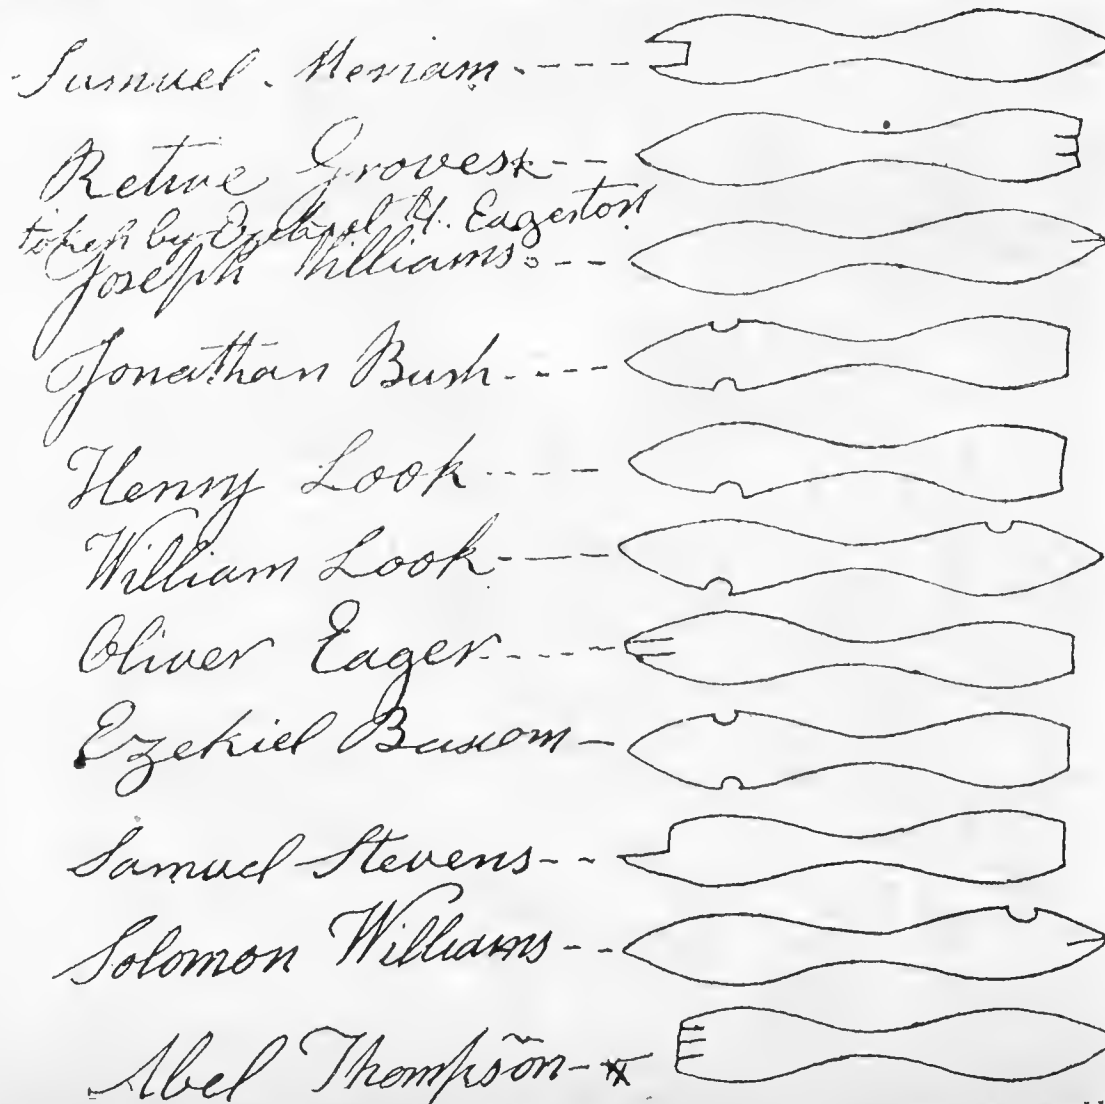 Samuel. Meriam.----
Retire Grovesx--
taken by Ezekiel H. Eagerton
Joseph Williams.---
Jonathan Bush.----
Henry Look-----
William Look----
Oliver Eager-----
Ezekiel Bascom-
Samuel Stevens--
Solomon Williams---
Abel Thompson-x